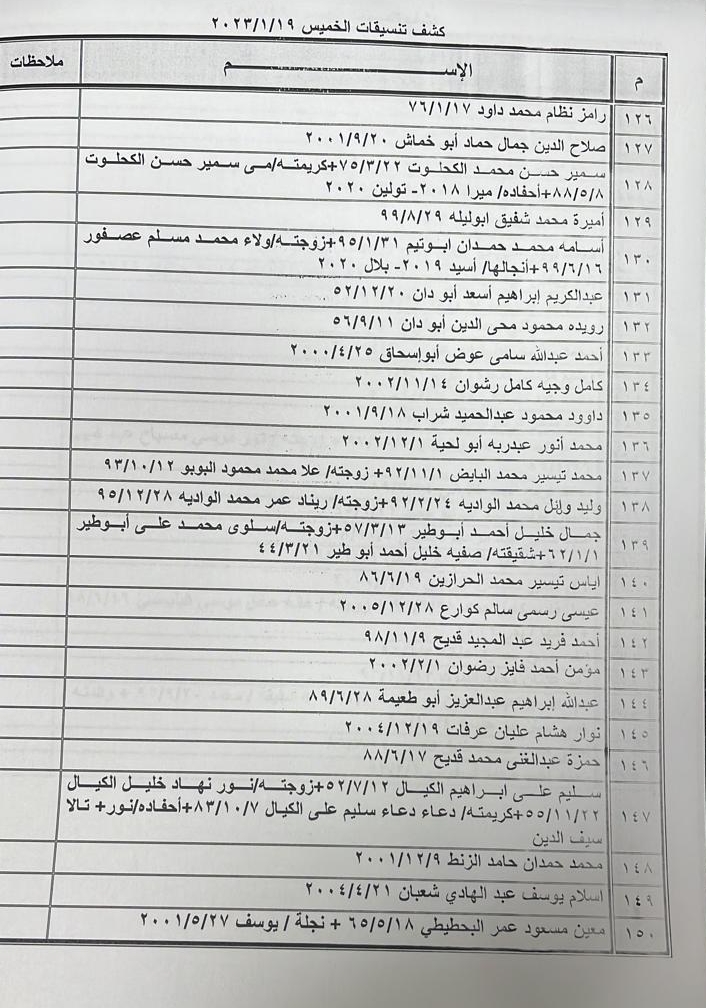 كشف تنسيقات الخميس ٢٠٢٣/١/١٩
م الإســـــم ملاحظات
١٢٦ رامز نظام محمد داود ٧٦/١/١٧
١٢٧ صلاح الدين جمال حماد أبو خماش ٢٠٠١/٩/٢٠
١٢٨ سمير حسن محمد الكحلوت ٧٥/٣/٢٢+كريمته/مى سمير حسن الكحلوت
٨٨/٥/٨+أحفاده/ ميرا ٢٠١٨- تولين ٢٠٢٠
١٢٩ أميرة محمد شفيق ابوليله ٩٩/٨/٢٩
١٣٠ أسامه محمد حمدان ابوتيم ٩٥/١/٣١+زوجته/ولاء محمد مسلم عصفور
٩٩/٦/١٦+أنجالها/ أسيد ٢٠١٩- بلال ٢٠٢٠
١٣١ عبدالكريم إبراهيم أسعد أبو دان ٥٢/١٢/٢٠
١٣٢ رويده محمود محى الدين أبو دان ٥٦/٩/١١
١٣٣ أحمد عبدالله سامى عوض أبوإسحاق ٢٠٠٠/٤/٢٥
١٣٤ كامل وجيه كامل رشوان ٢٠٠٢/١١/١٤
١٣٥ داوود محمود عبدالحميد شراب ٢٠٠١/٩/١٨
١٣٦ محمد أنور عبدربه أبو لحية ٢٠٠٢/١٢/١
١٣٧ محمد تيسير محمد البايض ٩٢/١١/١+ زوجته/ علا محمد محمود البوبو ٩٣/١٠/١٢
١٣٨ وليد وائل محمد الواديه ٩٢/٢/٢٤+زوجته/ ريناد عمر محمد الواديه ٩٥/١٢/٢٨
١٣٩ جمال خليل أحمد أبوطير ٥٧/٣/١٣+زوجته/سلوى محمد على أبوطير
٦٢/١/١+شقيقته/ صفيه خليل أحمد أبو طير ٤٤/٣/٢١
١٤٠ اياس تيسير محمد الحرازين ٨٦/٦/١٩
١٤١ عيسى رسمى سالم كوارع ٢٠٠٥/١٢/٢٨
١٤٢ أحمد فريد عبد المجيد قديح ٩٨/١١/٩
١٤٣ مؤمن أحمد فايز رضوان ٢٠٠٢/٢/١
١٤٤ عبدالله إبراهيم عبدالعزيز أبو طعيمة ٨٩/٦/٢٨
١٤٥ نوار هشام عليان عرفات ٢٠٠٤/١٢/١٩
١٤٦ حمزة عبدالغنى محمد قديح ٨٨/٦/١٧
١٤٧ سليم على ابراهيم الكيال ٥٢/٧/١٢+زوجته/نور نهاد خليل الكيال
٥٥/١١/٢٢+كريمته/ دعاء دعاء سليم على الكيال ٨٣/١٠/٧+أحفاده/نور+ تالا
سيف الدين
١٤٨ محمد حمدان حامد الزنط ٢٠٠١/١٢/٩
١٤٩ اسلام يوسف عبد الهادي شعبان ٢٠٠٤/٤/٢١
١٥٠ معين مسعود عمر البحطيطي ٦٥/٥/١٨ + نجلة / يوسف ٢٠٠١/٥/٢٧